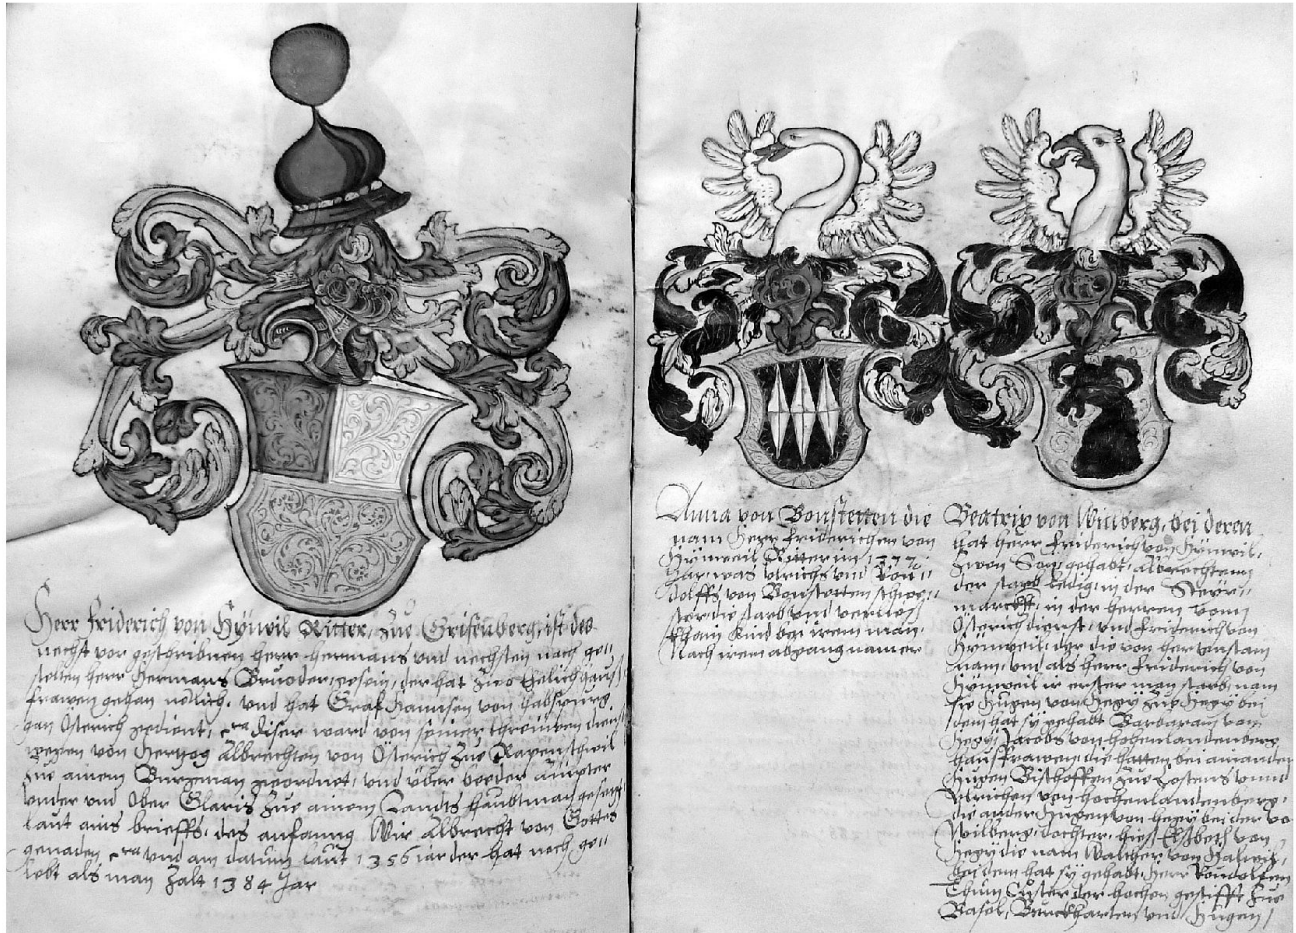 Herr Friderich von Hÿnwil Ritter, Zue Greifenberg, ist des
nechst vor geschribnen herr hermans vnd nechsten nach ge,,
stelten herr Hermans Bruoder gesein, der hat Zwo Eelich hauß,,
frawen gehan nemlich, vnd hat Graf hannsen von habspurg,
han Osterich gedient, diser ward von seiner threüwen dien,,
wegen von Hertzog Albrechten von Osterich Zue Rapenschwil
Zue ainem Burgman geordnet, vnd über beeder ämpter
vnder vnd Ober Glaris Zue ainem Landts haubtman gesetzt,
laut ains brieffs, des anfanng, Wir Albrecht von Gottes
genaden, vnd am datum laut 1356 jar der hat noch ge,,
lebt als man Zalt 1384 Jar
Anna von Bonstetten die
nam Herr Friderichen von
Hÿnweil Ritter im 1372
Jar, was vlrichs vnd Ruo,,
dolffs von Bonstetten schwe,,
ster die starb vnd verließ
kain kind bei irem man,
Nach irem abgang nam er
Beatrix von Wilberg, bei deren
hat herr Friderich von Hÿnwil,
Zwen Sön gehabt, Albrechten
der starb ledig, in der Steÿr,,
marckt, in der herren vonn
Osterich dienst, vnd Friderich von
Hÿnweil, der die von
nam, vnd als herr Friderich von
Hÿnweil ir erster man starb, nam
sie Hugen von Hegÿ Zue Hegÿ bei
dem hat sÿ gehabt Barbaran von
Hegÿ, Jacobs von hohenlandenberg
haußfrawen, die hatten bei ainanden
Hugen Bischoffen Zue Costens vnnd
Vlrichen von hochenlandenberg,
die ander Hugen von hegÿ bei der vo
wilberg, dochter, hieß Elsbeth von
Hegÿ die nam Walther von Halwil,
bei dem hat sÿ gehabt, Herr Ruodolffen
Thum Custer der hochen gestifft Zue
Basel, Burckharten, vnd Hugen,